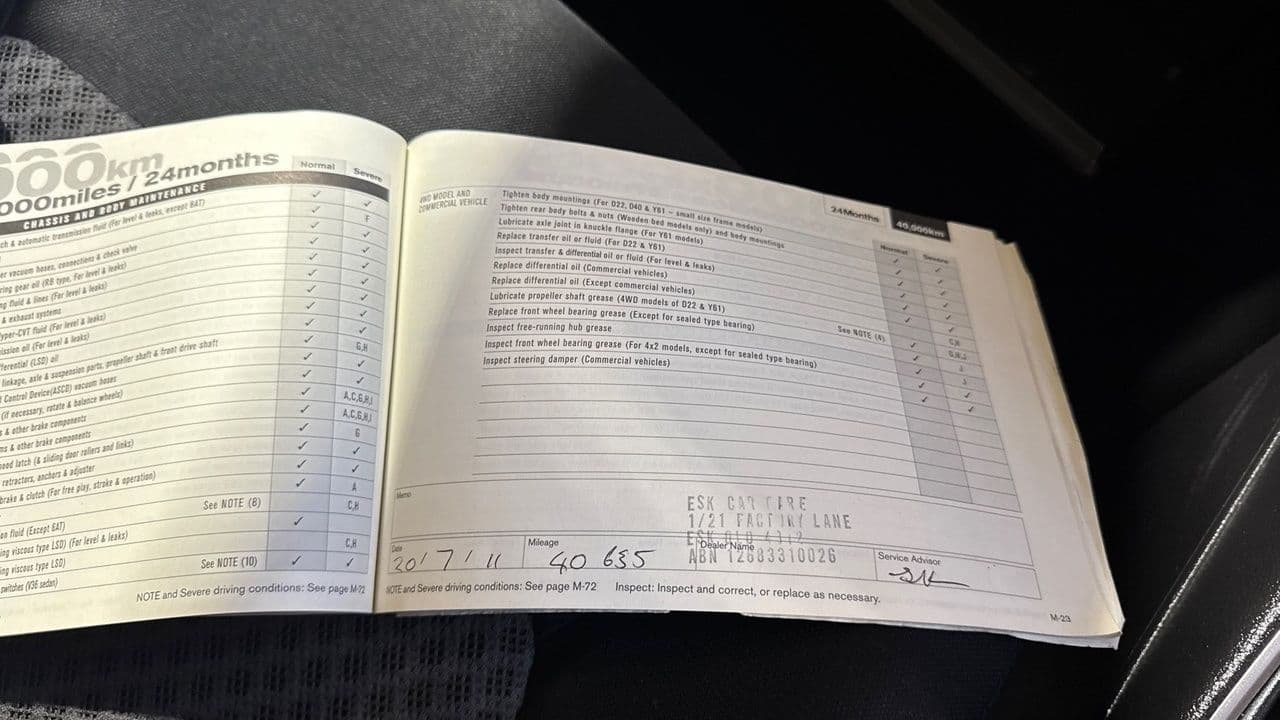 000km
000miles / 24months
Normal Severe
CHASSIS AND BODY MAINTENANCE
ch & automatic transmission fluid (For level & leaks, except BAT)
er vacuum hoses, connections & check valve
ring gear oil (RB type, For level & leaks)
ng fluid & lines (For level & leaks)
& exhaust systems
yper-CVT fluid (For level & leaks)
ission oil (For level & leaks)
ferential (LSD) oil
linkage, axle & suspension parts, propeller shaft & front drive shaft
Control Device(ASCD) vacuum hoses
(if necessary, rotate & balance wheels)
s & other brake components
ms & other brake components
hood latch (& sliding door rollers and links)
retractors, anchors & adjuster
brake & clutch (For free play, stroke & operation)
See NOTE (8)
on fluid (Except 6AT)
ing viscous type LSD) (For level & leaks)
ing viscous type LSD)
See NOTE (10)
switches (V36 sedan)
F
G,H
A,C,G,H,I
A,C,G,H,I
G
A
C,H
C,H
NOTE and Severe driving conditions: See page M-72
24Months 40,000km
Normal Severe
4WD MODEL AND
COMMERCIAL VEHICLE
Tighten body mountings (For D22, D40 & Y61 – small size frame models)
Tighten rear body bolts & nuts (Wooden bed models only) and body mountings
Lubricate axle joint in knuckle flange (For Y61 models)
Replace transfer oil or fluid (For D22 & Y61)
Inspect transfer & differential oil or fluid (For level & leaks)
Replace differential oil (Commercial vehicles)
Replace differential oil (Except commercial vehicles)
Lubricate propeller shaft grease (4WD models of D22 & Y61)
Replace front wheel bearing grease (Except for sealed type bearing) See NOTE (4)
Inspect free-running hub grease
Inspect front wheel bearing grease (For 4x2 models, except for sealed type bearing)
Inspect steering damper (Commercial vehicles)
G,H
G,H,J
J
J
Memo
ESK CAR CARE
1/21 FACTORY LANE
ESK QLD 4312
ABN 12683310026
Date
20/7/11
Mileage
40 635
Dealer Name
Service Advisor
NOTE and Severe driving conditions: See page M-72 Inspect: Inspect and correct, or replace as necessary.
M-23